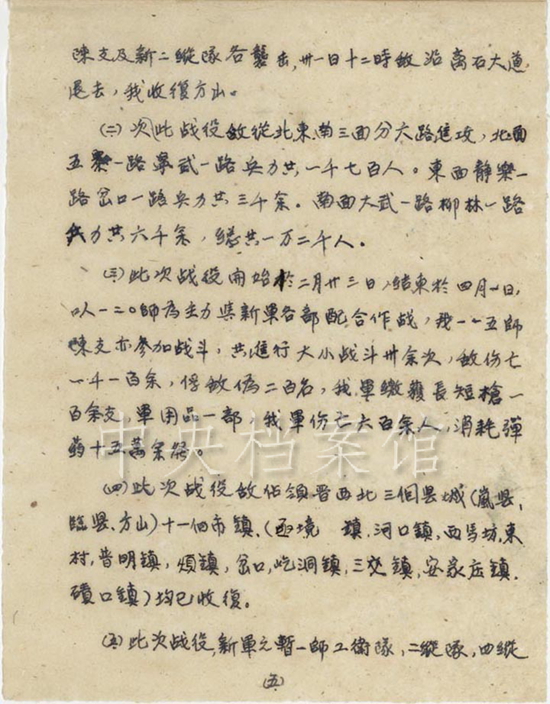 陳支及新二縱隊各襲击,卅一日十二時敵沿離石大道
退去,我收復方山。
(二)次此战役敵從北東南三面分六路進攻,北面
五寨一路寧武一路兵力共一千七百人。東面静樂一
路岔口一路兵力共三千余。南面大武一路柳林一路
兵力共六千余,總共一万二千人。
(三)此次战役開始於二月廿三日,结束於四月一日,
以一二〇師為主力與新軍各部配合作战,我一一五師
陳支亦参加战斗,共進行大小战斗卅余次,敵伤亡
一千一百余,俘敵偽二百名,我軍繳獲長短槍一
百余支,軍用品一部,我軍伤亡六百余人,消耗彈
药十五萬余發。
中央档案馆
(四)此次战役敌佔領晋西北三個县城(嵐县、
臨县、方山)十一個市镇、(鎮、河口鎮,西馬坊,東
村,普明鎮,煩鎮,岔口,圪洞鎮,三交鎮,安家庄鎮、
磧口鎮)均已收復。
(五)此次战役,新軍之暫一師工衛隊,二縱隊,四縱
(五)